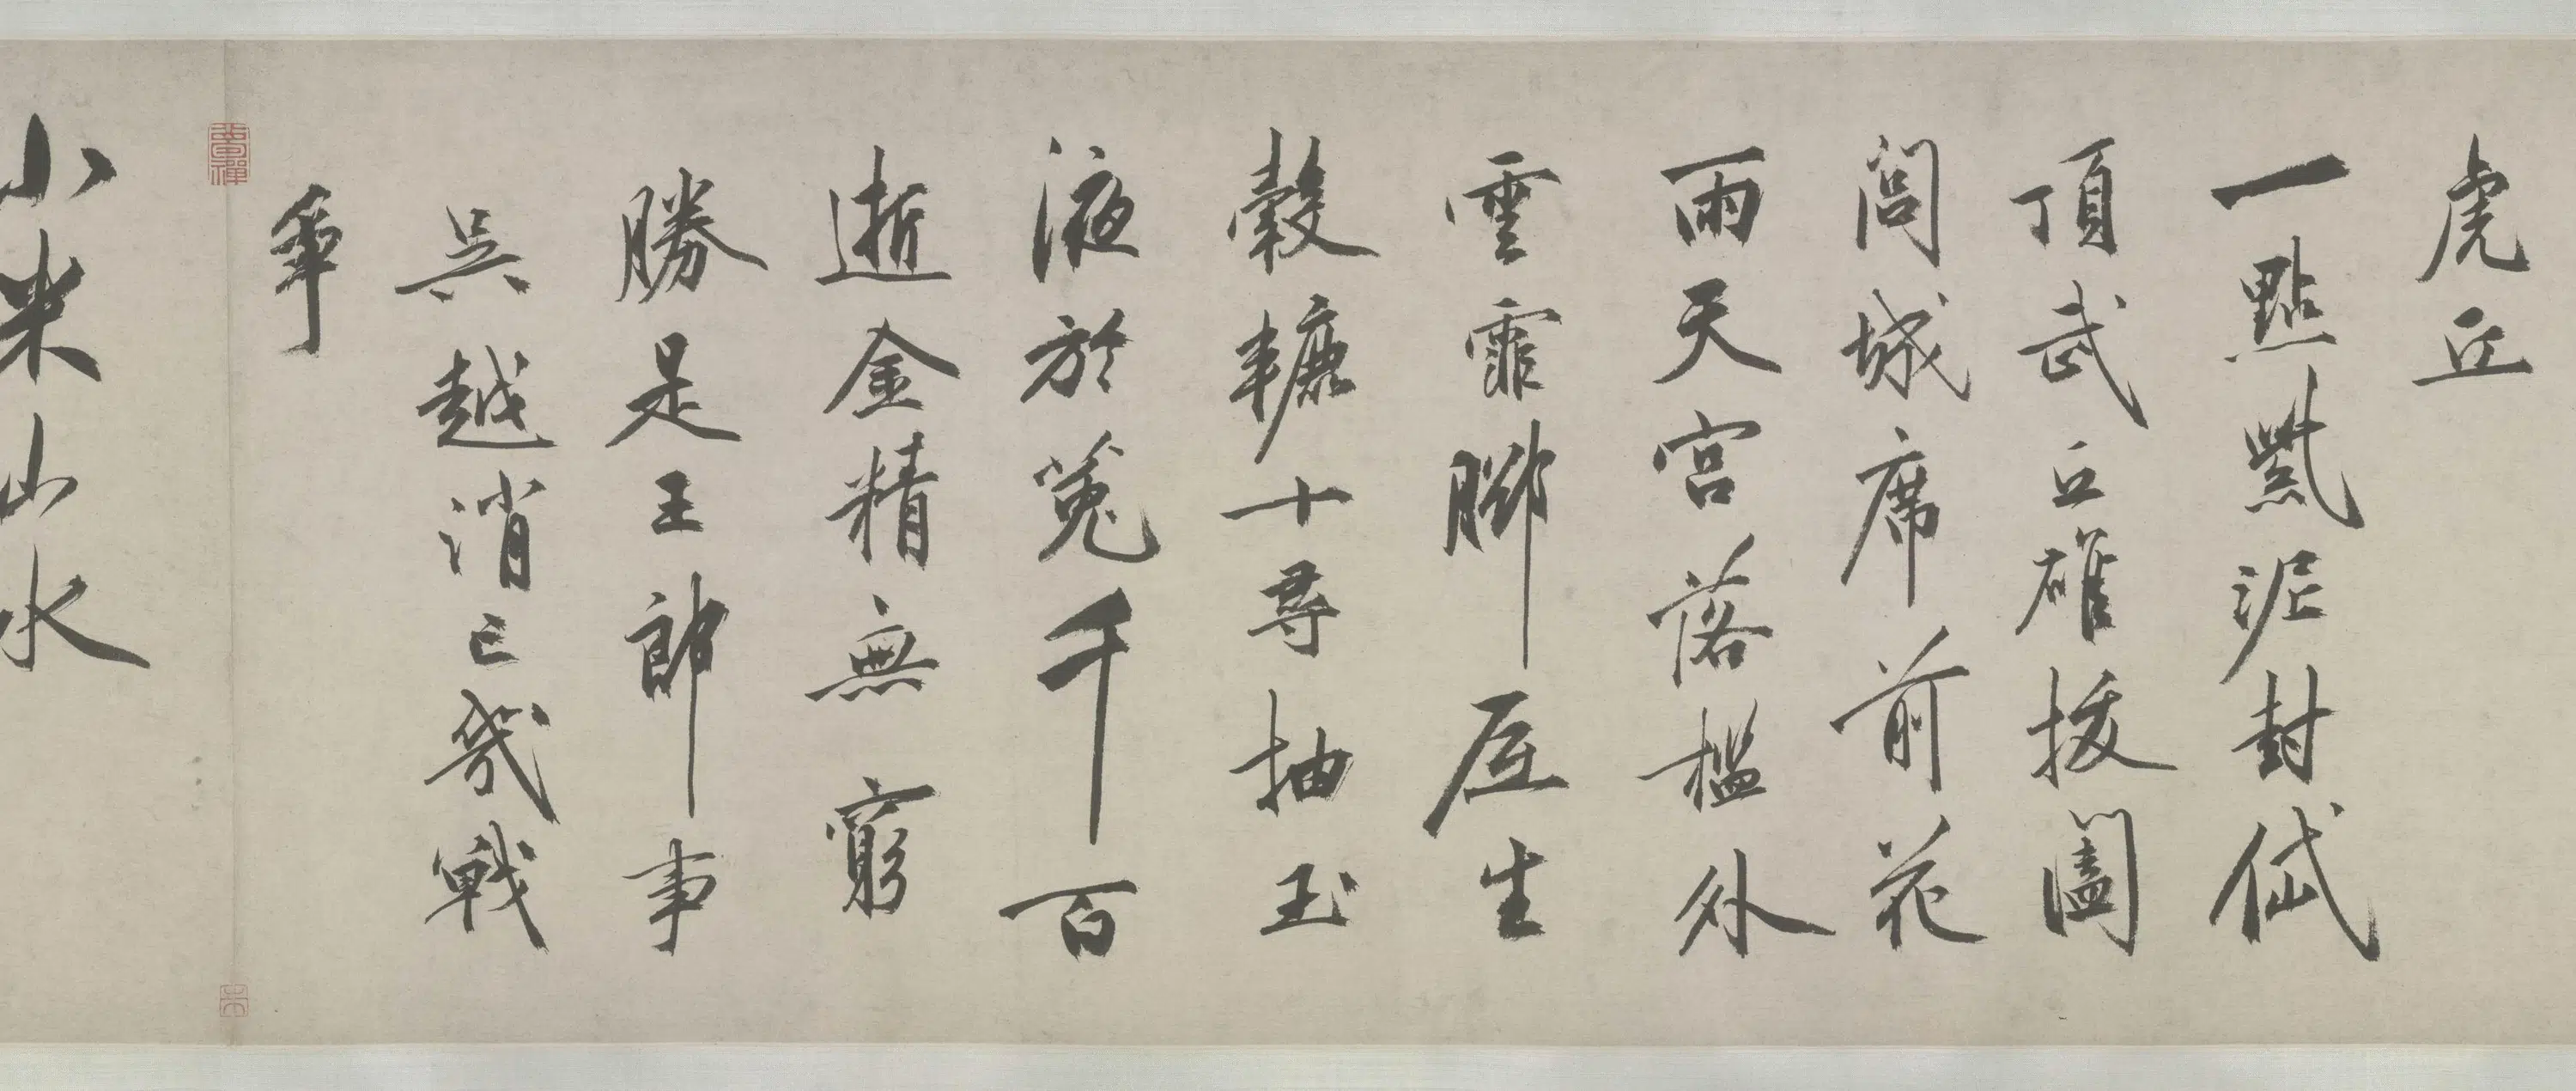 虎丘
一點紫泥封岱
頂武丘雄拔闔
閭城席前花
雨天宮落檻外
雲霏腳底生
轂轆十尋抽玉
液於菟千百
逝金精無窮
勝是王郎事
吳越消已幾戰
爭
小米山水